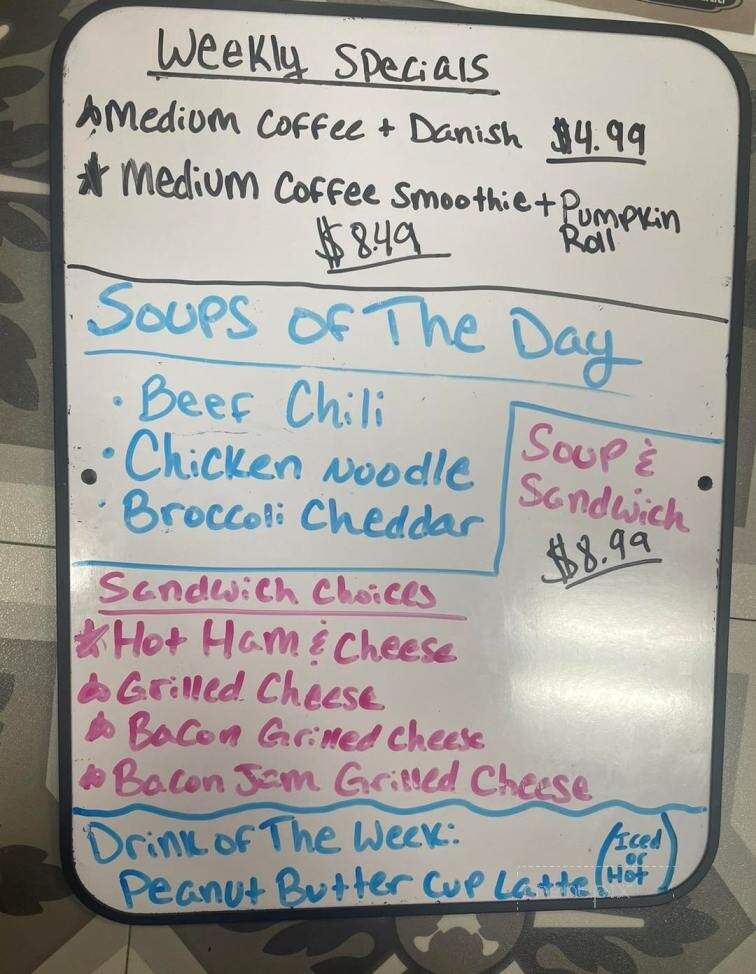 Weekly Specials
Medium Coffee + Danish $4.99
Medium Coffee Smoothie + Pumpkin
Roll
$8.49
Soups of The Day
• Beef Chili
• Chicken Noodle
• Broccoli Cheddar
Soup &
Sandwich
$8.99
Sandwich Choices
Hot Ham & Cheese
Grilled Cheese
Bacon Grilled Cheese
Bacon Jam Grilled Cheese
Drink of The Week:
Peanut Butter Cup Latte (Iced
or
Hot)